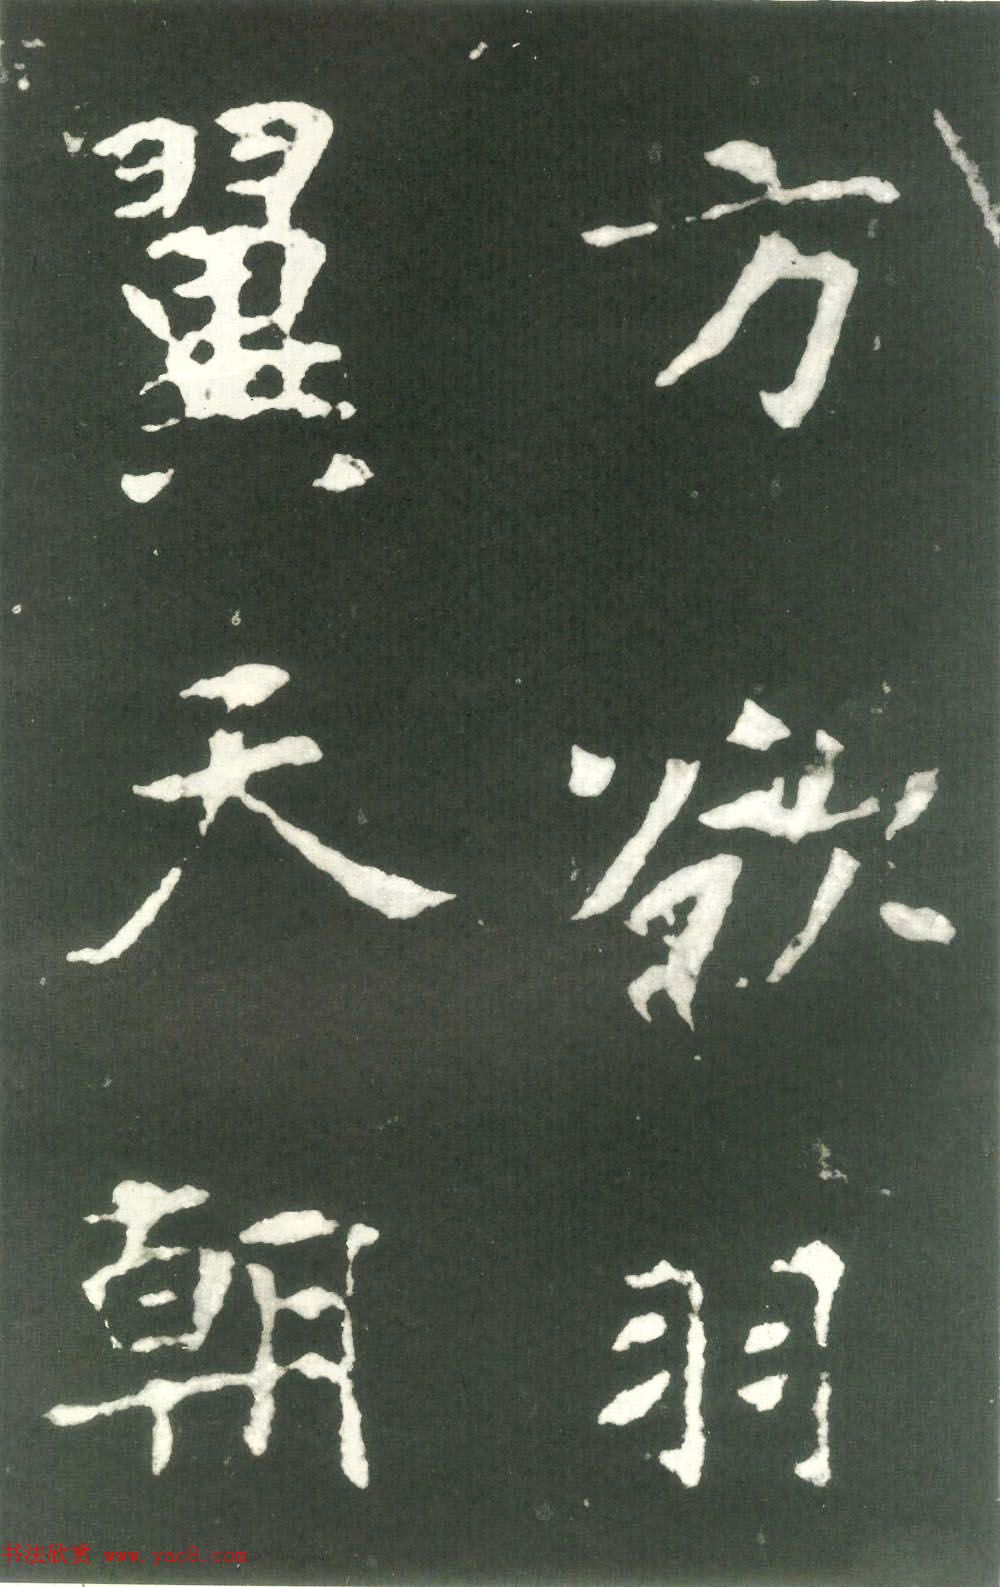 方欲羽
翼天朝
书法欣赏 www.yac8.com